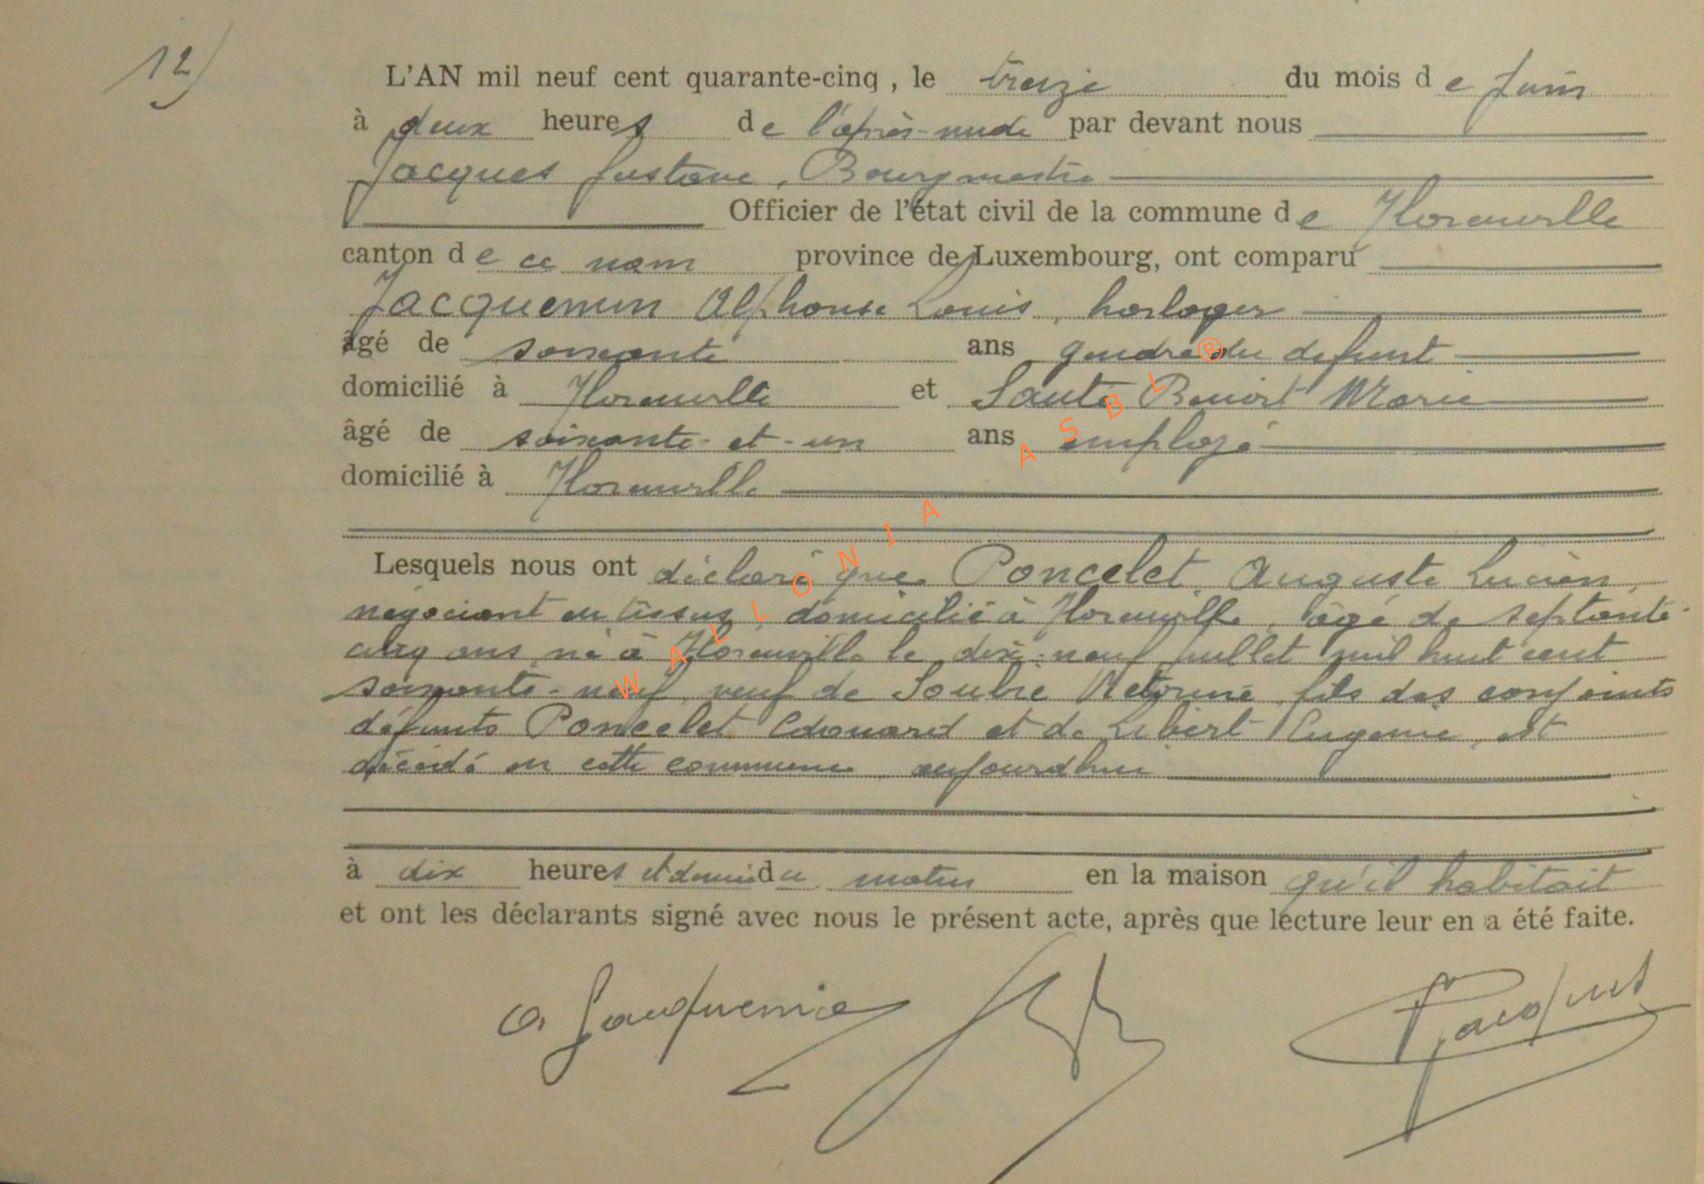 12)
L'AN mil neuf cent quarante-cinq , le treize du mois de Juin
à deux heures de l'après-midi par devant nous
Jacques Gustave, Bourgmestre
Officier de l'état civil de la commune de Florenville
canton de ce nom province de Luxembourg, ont comparu
Jacquemin Alphonse Louis, horloger
âgé de soixante ans gendre du défunt
domicilié à Florenville et Benoit Marie
âgé de soixante-et-un ans employé
domicilié à Florenville
Lesquels nous ont déclaré que Poncelet Auguste Lucien,
négociant en tissus, domicilié à Florenville, âgé de septante-
cinq ans, né à Florenville le dix-neuf juillet mil huit cent
soixante-neuf, veuf de fils des conjoints
défunts Poncelet Edouard et de Libert Eugénie, est
décédé en cette commune aujourd'hui
à dix heures et demi du matin en la maison qu'il habitait
et ont les déclarants signé avec nous le présent acte, après que lecture leur en a été faite.
A Jacquemin Jacques
WALLONIA ASBL ®